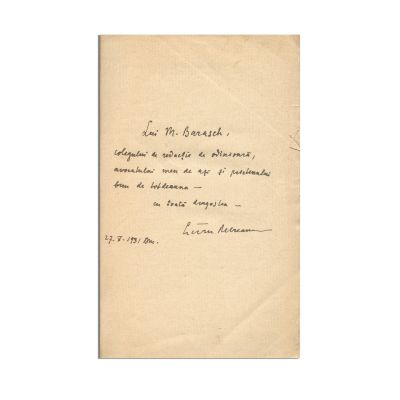 Lui M. Barasch,
colegului de redacție de odinioară,
avocatului meu de azi și prietenului
bun de totdeauna —
cu toată dragostea —
Liviu Rebreanu
27.V.1931 Buc.